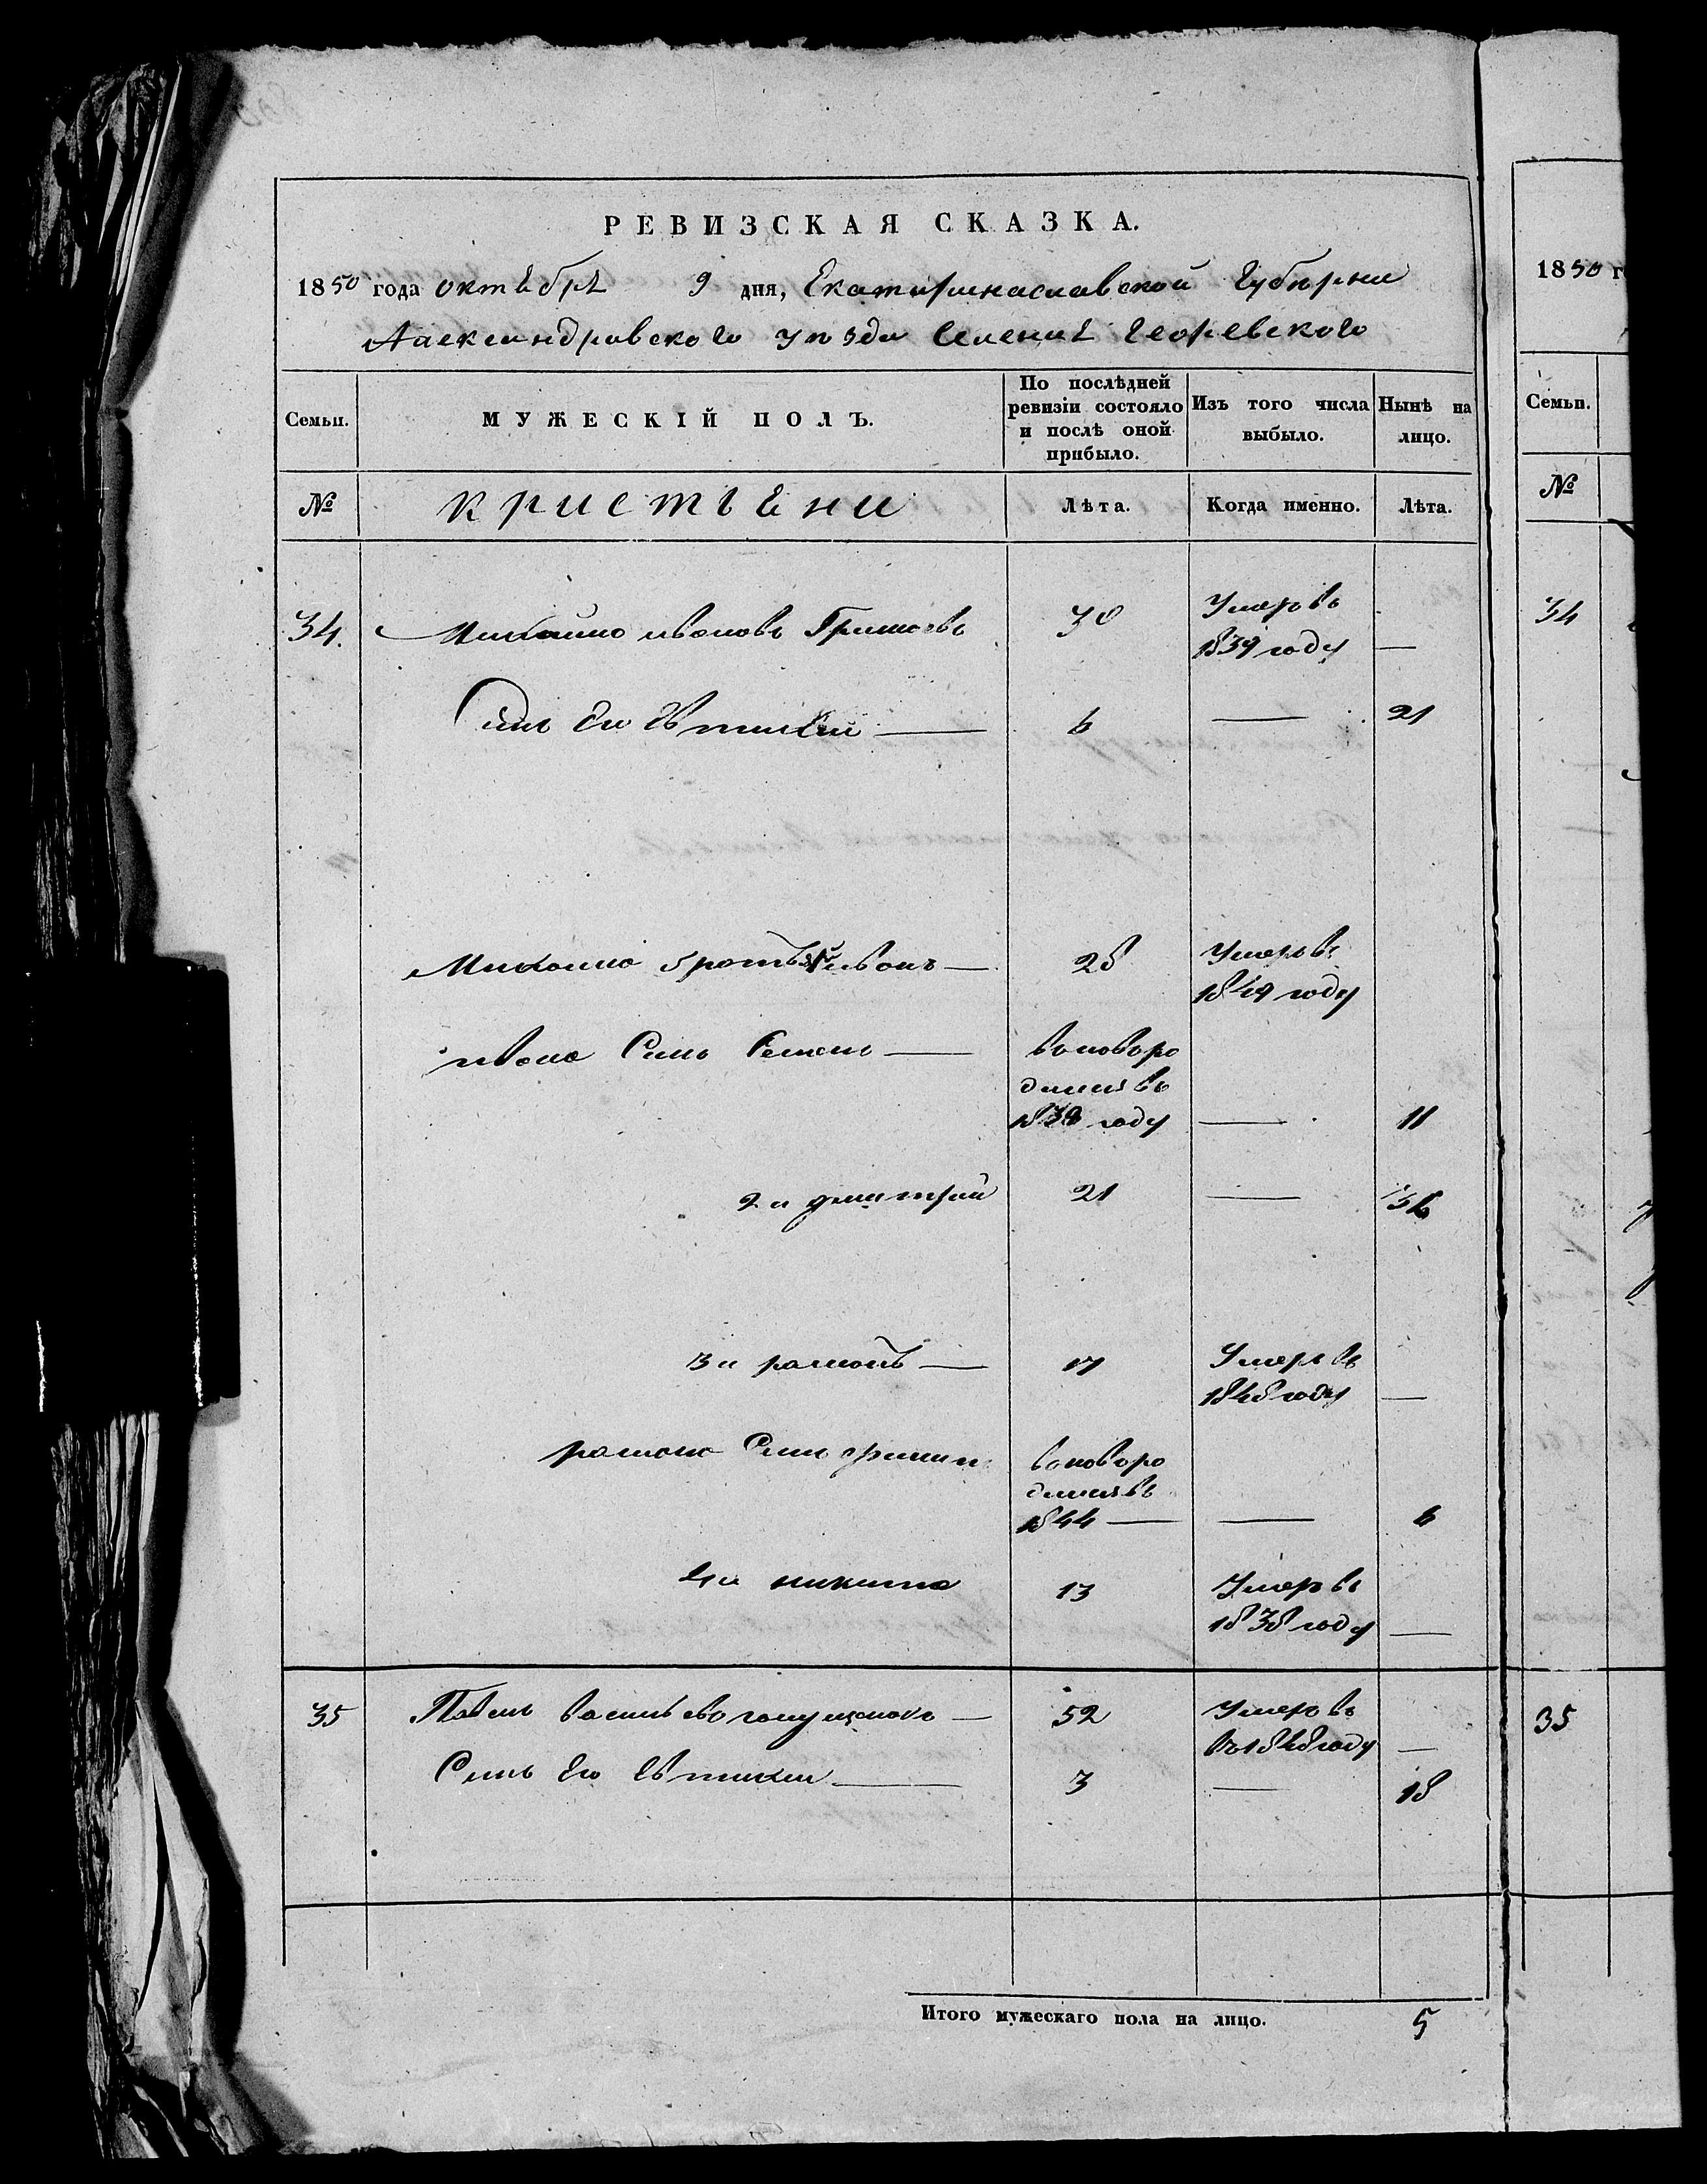 РЕВИЗСКАЯ СКАЗКА.
1850 года октебря 9 дня, Екатиринаславской Губерни
Александравского уезда Селения Георевского
Семьи. МУЖЕСКІЙ ПОЛЪ. По послѣдней ревизіи состояло и послѣ оной прибыло. Изъ того числа выбыло. Нынѣ на лицо.
№ кристьяни Лѣта. Когда именно. Лѣта.
34. ивановъ 30 Умер въ
1839 году —
Синъ Его — 6 — 21
братъ иванъ — 28 Умер въ
1849 году
ивана Синъ Семенъ — вновьро
динив въ
1839 году — 11
2й дмитрий 21 — 36
3й раманъ — 17 Умер въ
1848 году —
рамана Синъ вновьро
динив въ
1844 — — 6
4й никита 13 Умер въ
1838 году —
35 Павелъ васильевъ — 52 Умер въ
въ 1848 году —
Синъ Его — 3 — 18
Итого мужескаго пола на лицо. 5
1850 г
Семьи.
№
34
35